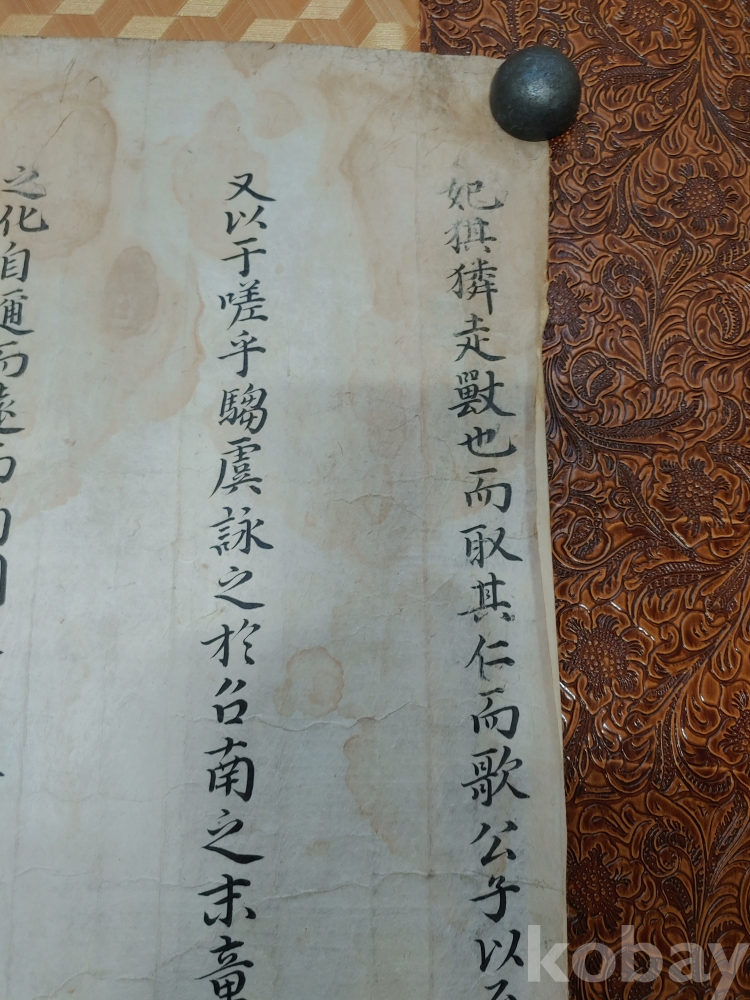 妃猉獜走獸也而取其仁而歌公子以
又以于嗟乎騶虞詠之於召南之末章
之化自邇而遠而
kobay